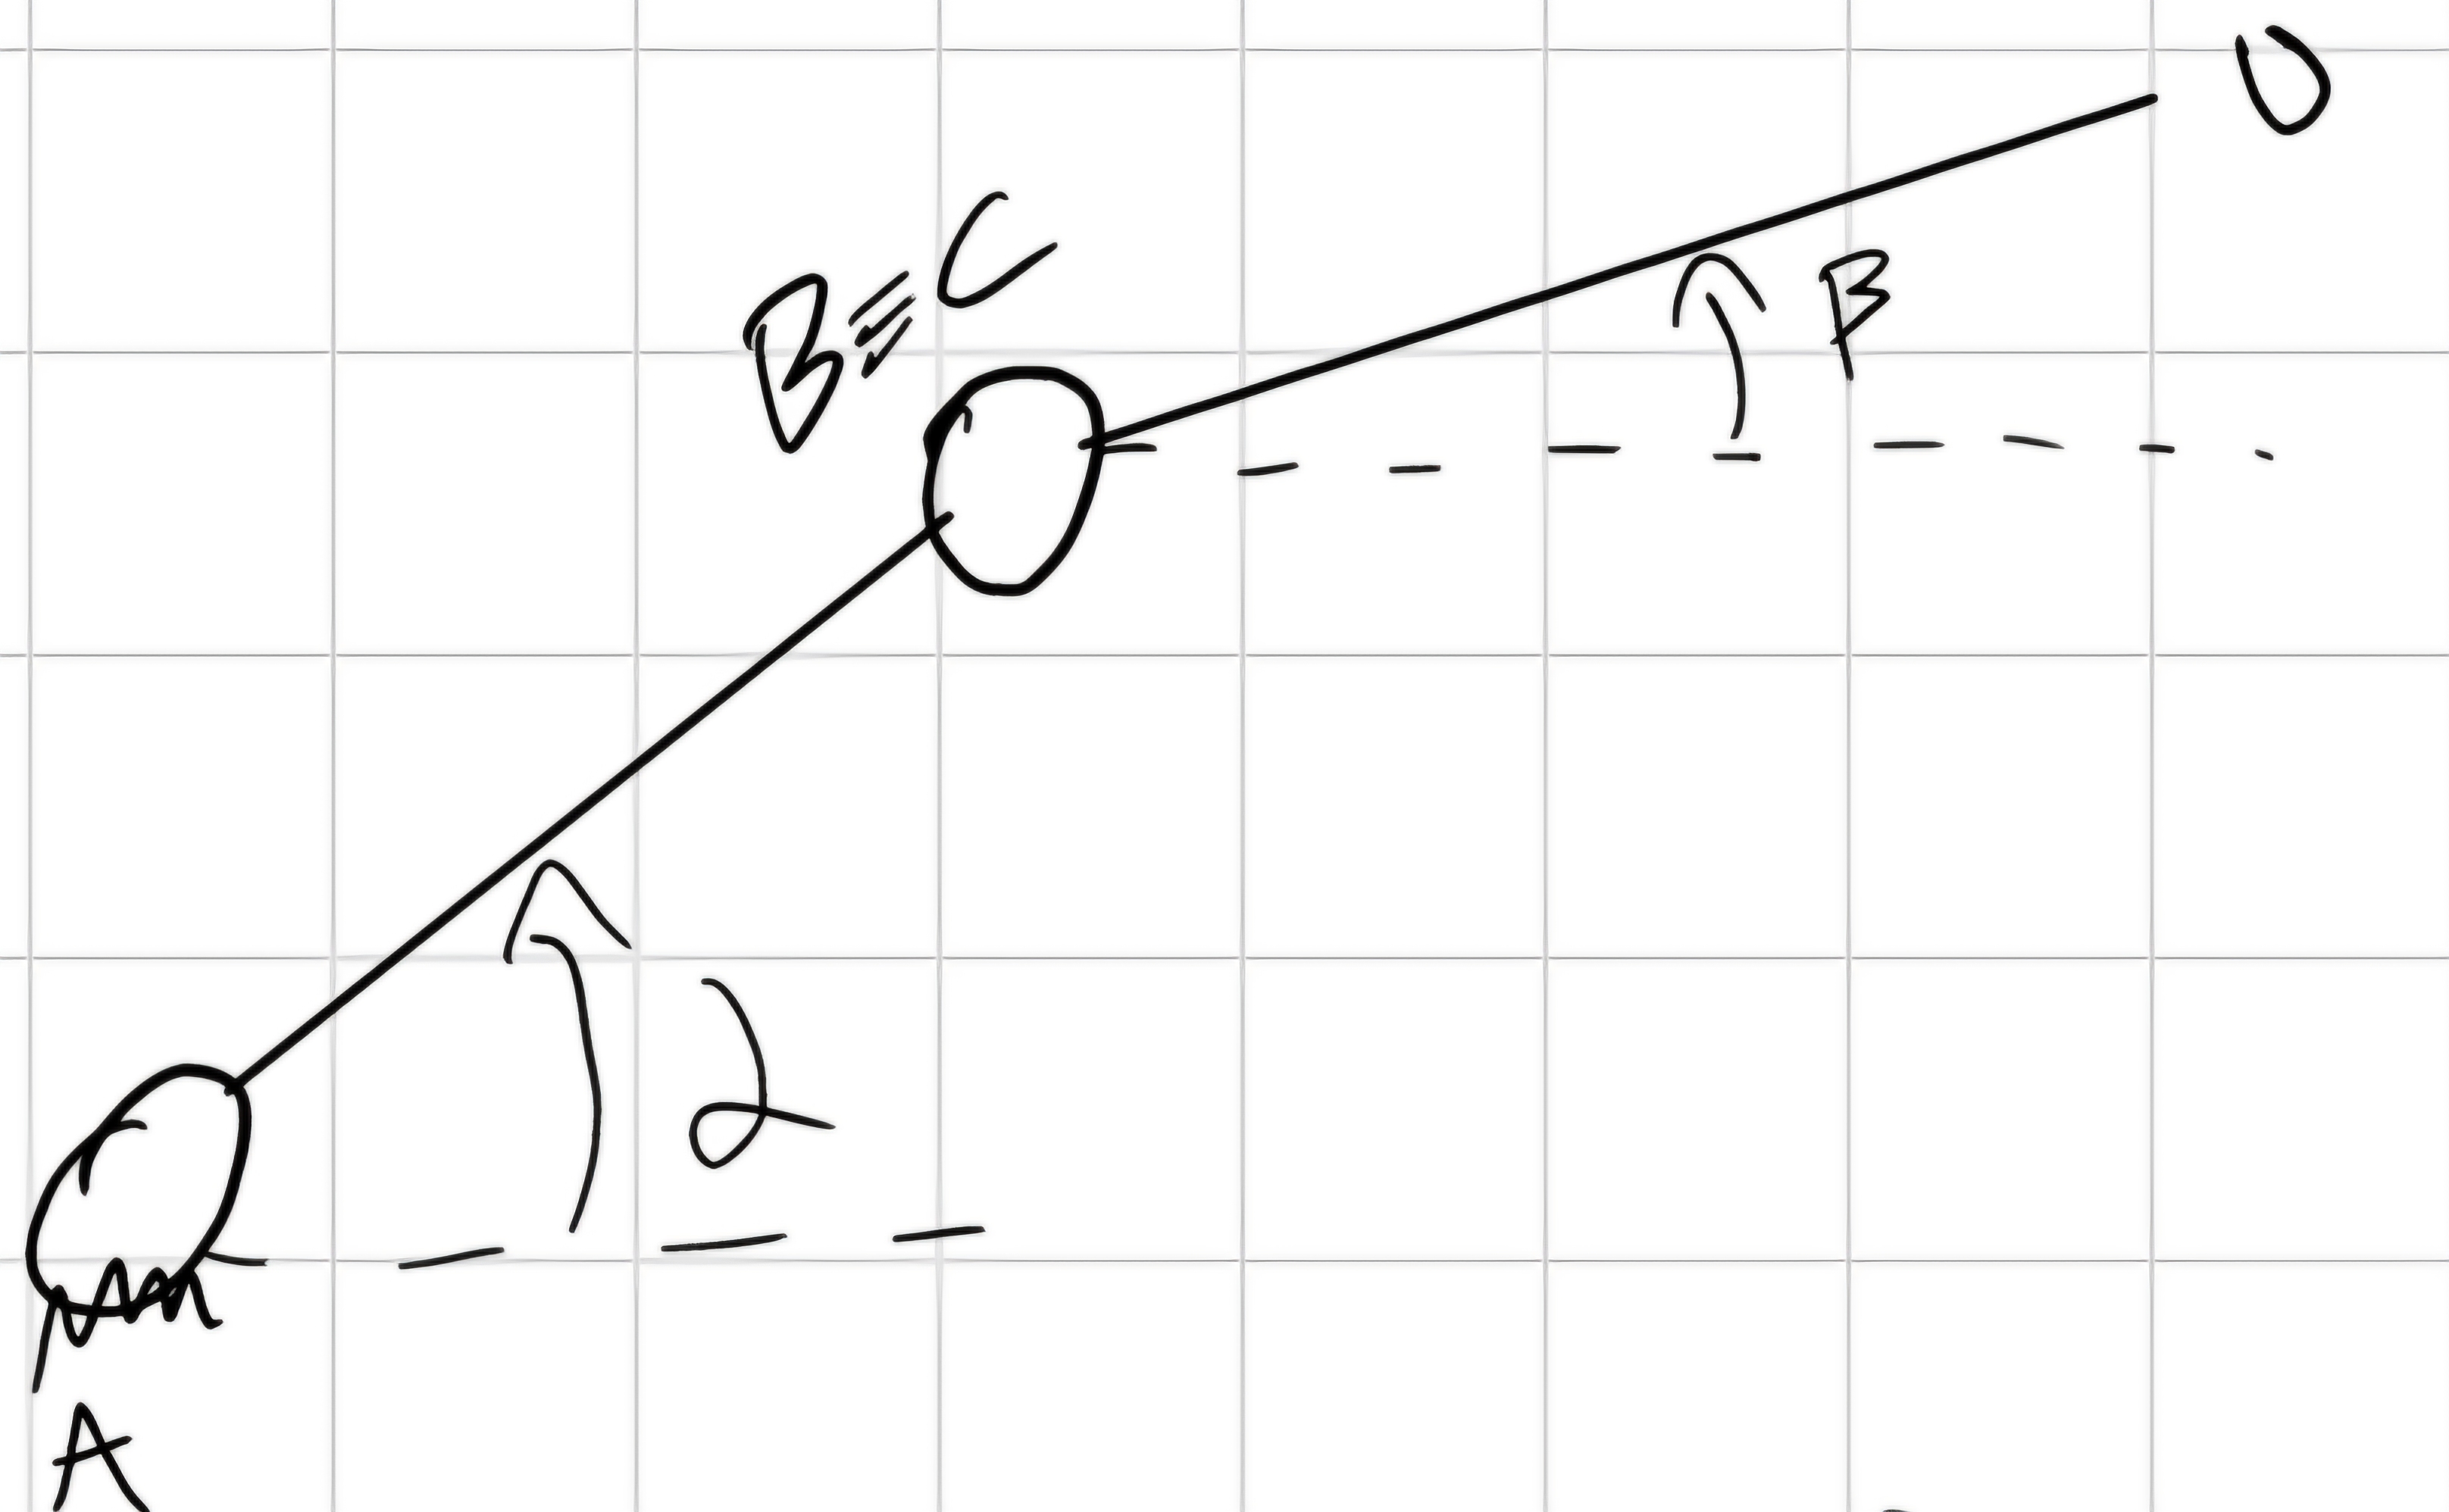 D
B≡C
β
α
A